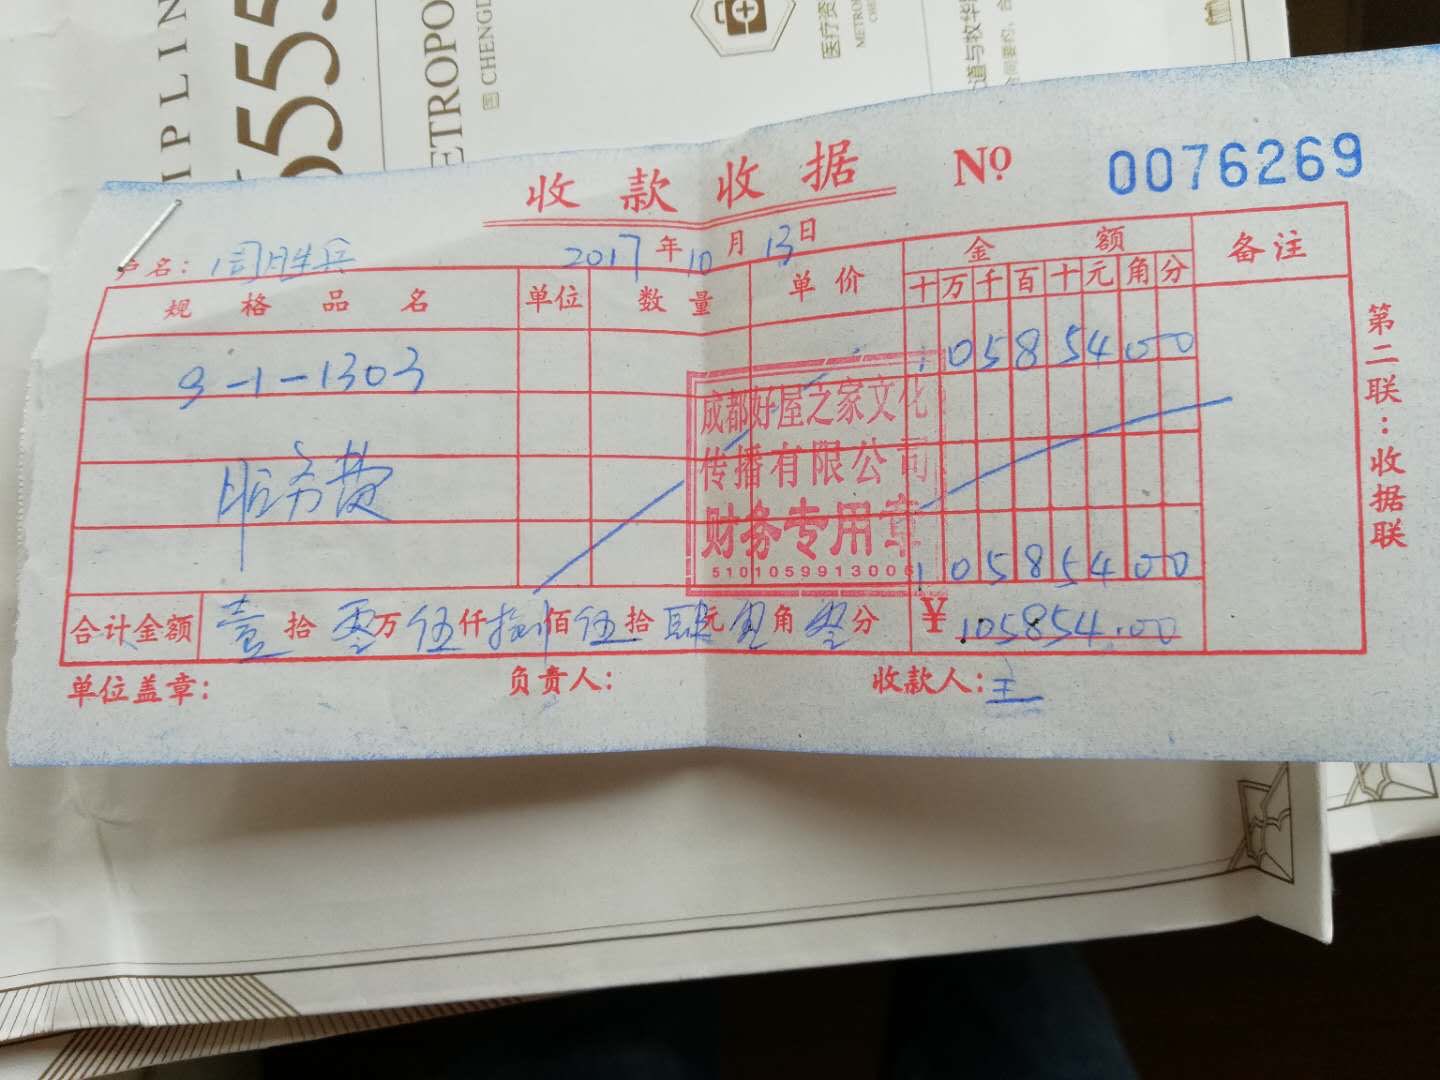 IPLIN
555
METROPO
CHENGD
医疗资
METRO
CHE
道与牧华
收款收据 Nº 0076269
户名: 周胜兵 2017年10月13日
规格品名 单位 数量 单价 金额 备注
十万千百十元角分
9-1-1303 10585400
服务费
成都好屋之家文化
传播有限公司
财务专用章
510105991300
10585400
合计金额 壹拾零万伍仟捌佰伍拾肆元零角零分 ¥105854.00
单位盖章: 负责人: 收款人: 王
第二联:收据联